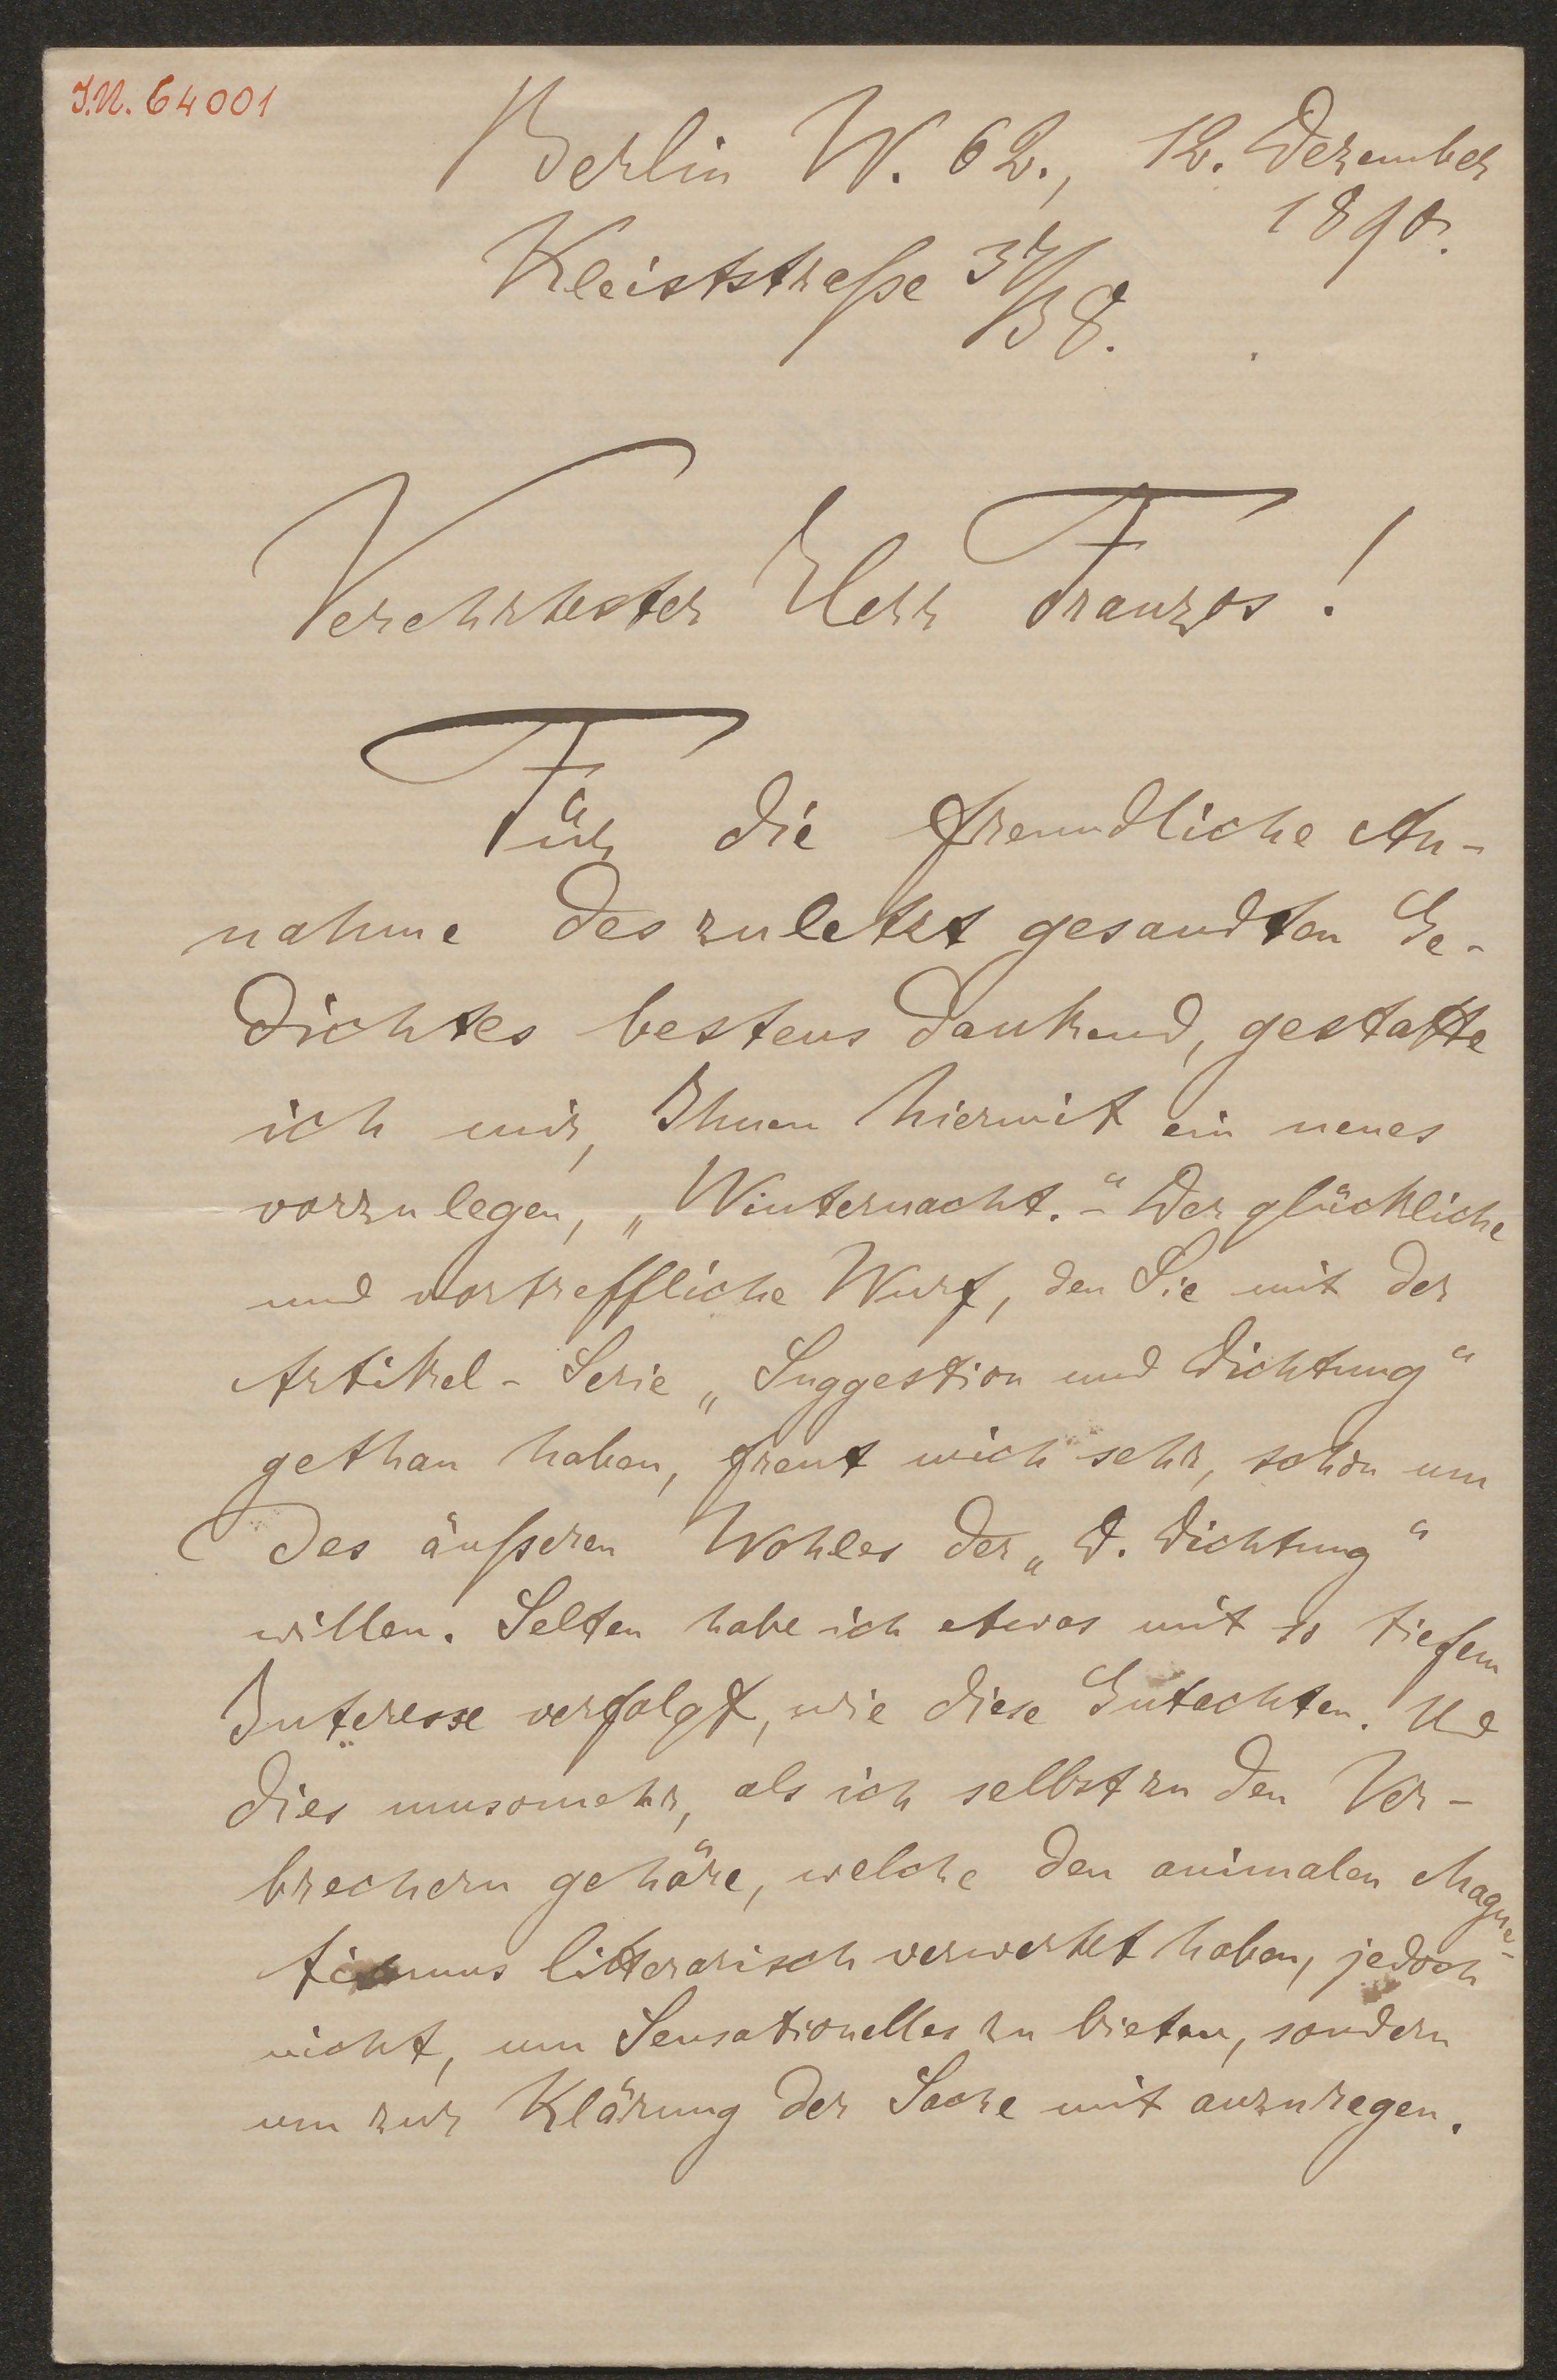 I.N. 64001
Berlin W. 62., 12. Dezember
1890.
Kleiststraße 37/38.
Verehrtester Herr Franzos!
Für die freundliche An-
nahme des zuletzt gesandten Ge-
dichtes bestens dankend, gestatte
ich mir, Ihnen hiermit ein neues
vorzulegen, „Winternacht." – Der glückliche
und vortreffliche Wurf, den Sie mit der
Artikel-Serie „Suggestion und Dichtung"
gethan haben, freut mich sehr, schon um
des äußeren Wohles der „D. Dichtung"
willen. Selten habe ich etwas mit so tiefem
Interesse verfolgt, wie diese Gutachten. Und
dies umsomehr, als ich selbst zu den Ver-
brechern gehöre, welche den animalen Magne-
tismus litterarisch verwertet haben, jedoch
nicht, um Sensationelles zu bieten, sondern
um zur Klärung der Sache mit anzuregen.